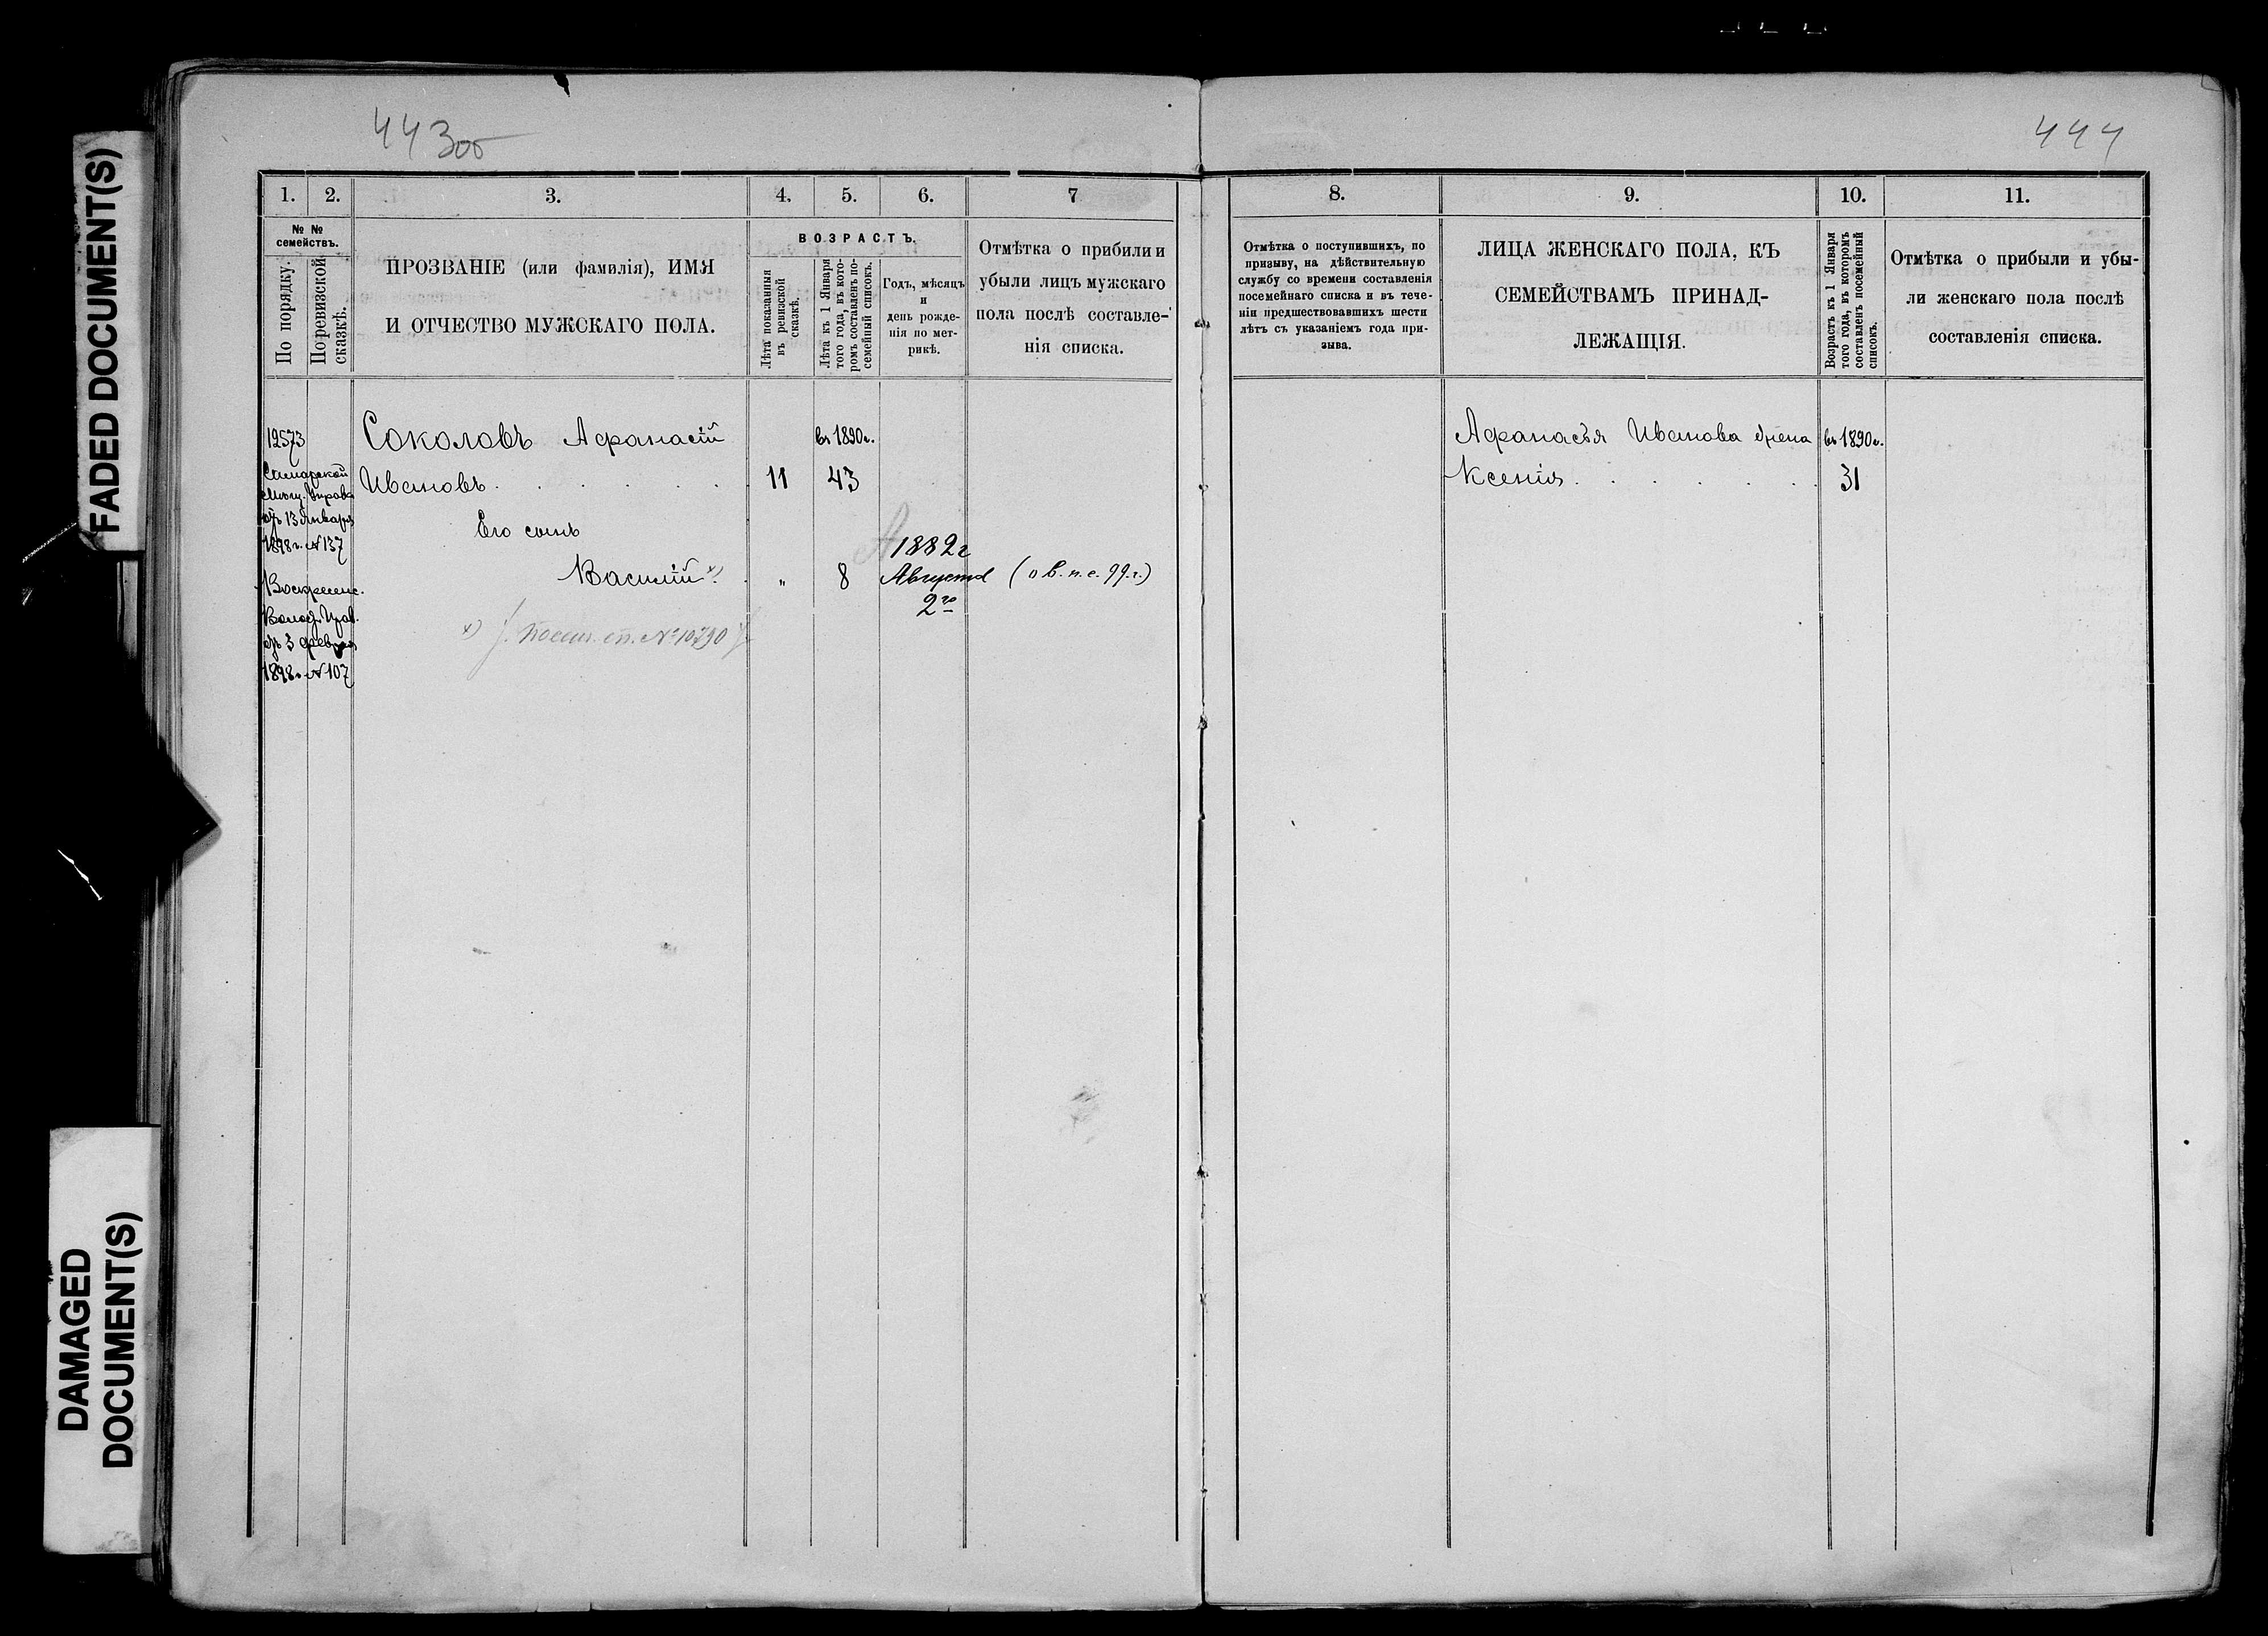 FADED DOCUMENT(S)
DAMAGED
DOCUMENT(S)
443об
444
1.
2.
3.
4.
5.
6.
7
№ №
семействъ.
По порядку.
По ревизской
сказкѣ.
ПРОЗВАНІЕ (или фамилія), ИМЯ
И ОТЧЕСТВО МУЖСКАГО ПОЛА.
ВОЗРАСТЪ.
Лѣта показанныя
въ ревизской
сказкѣ.
Лѣта къ 1 Января
того года, въ кото-
ромъ составленъ по-
семейный списокъ.
Годъ, мѣсяцъ
и
день рожде-
нія по мет-
рикѣ.
Отмѣтка о прибили и
убыли лицъ мужскаго
пола послѣ составле-
нія списка.
12573
Самарской
Мѣщ. Управы
отъ 13 Января
1898 г. № 137
Воскресенс.
Волост. Прав.
отъ 3 февраля
1898 г. № 107
Соколовъ Афанасій
въ 1890 г.
Ивановъ . . . . . . 11 43
Его сынъ
1882 г
Василій х) . " 8 Августа (о в. п. с. 99. г.)
2го
х) /. Посем. сп. № 10790 /.
8.
9.
10.
11.
Отмѣтка о поступившихъ, по
призыву, на дѣйствительную
службу со времени составленія
посемейнаго списка и въ тече-
ніи предшествовавшихъ шести
лѣтъ съ указаніемъ года при-
зыва.
ЛИЦА ЖЕНСКАГО ПОЛА, КЪ
СЕМЕЙСТВАМЪ ПРИНАД-
ЛЕЖАЩІЯ.
Возрастъ къ 1 Января
того года, въ которомъ
составленъ посемейный
списокъ.
Отмѣтка о прибыли и убы-
ли женскаго пола послѣ
составленія списка.
Афанасья Иванова жена въ 1890 г.
Ксенія . . . . . . 31